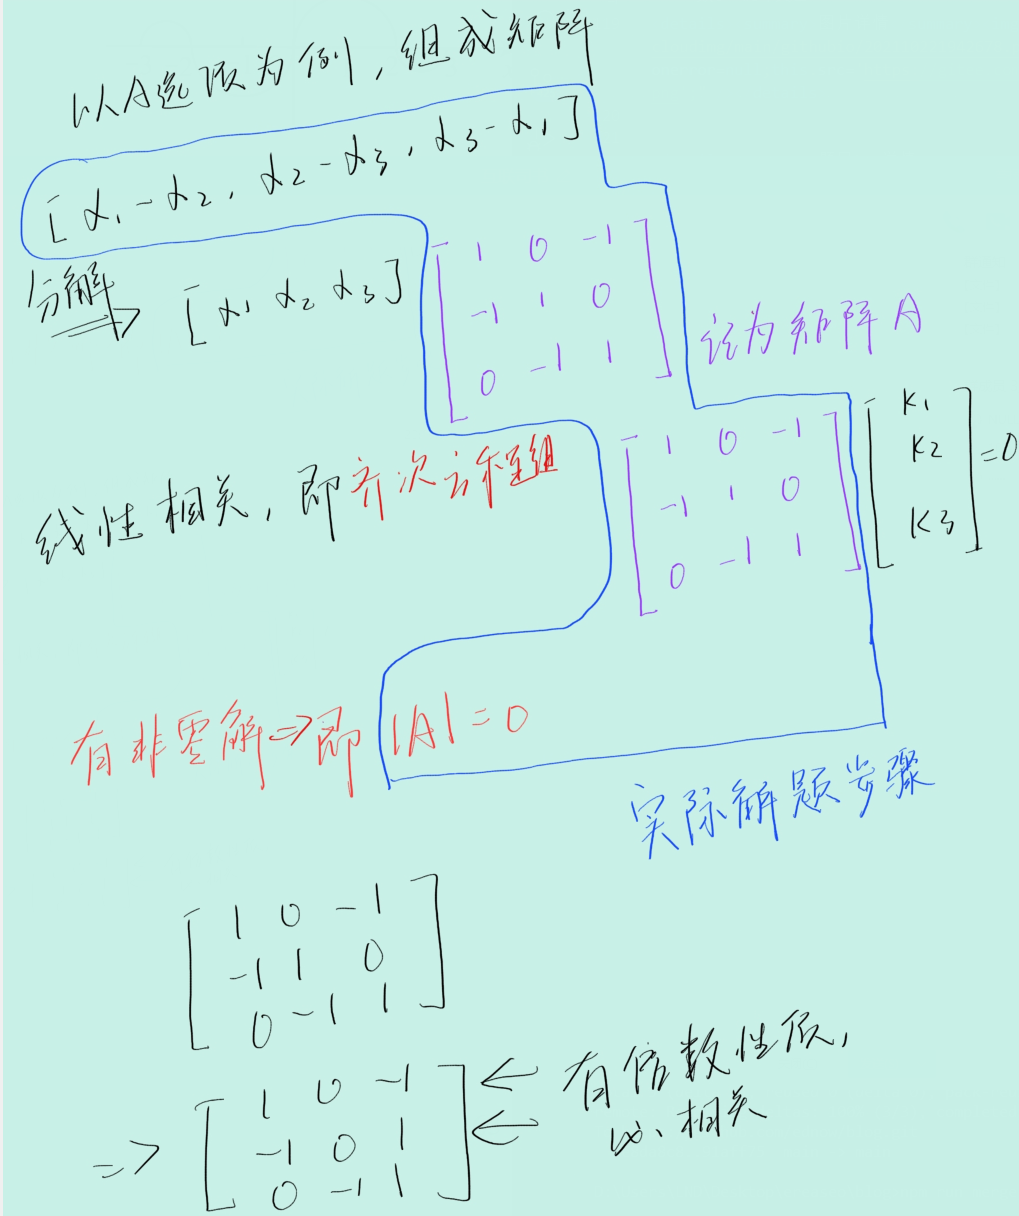 以A选项为例,组成矩阵
[α₁-α₂, α₂-α₃, α₃-α₁]
分解 ⇒ [α₁ α₂ α₃]
1 0 -1
-1 1 0
0 -1 1
记为矩阵A
线性相关,即齐次方程组
1 0 -1
-1 1 0
0 -1 1
K₁
K₂
K₃
=0
有非零解⇒即 |A|=0
实际解题步骤
1 0 -1
-1 1 0
0 -1 1
⇒
1 0 -1
-1 0 1
0 -1 1
← 有倍数性质,
← 必相关